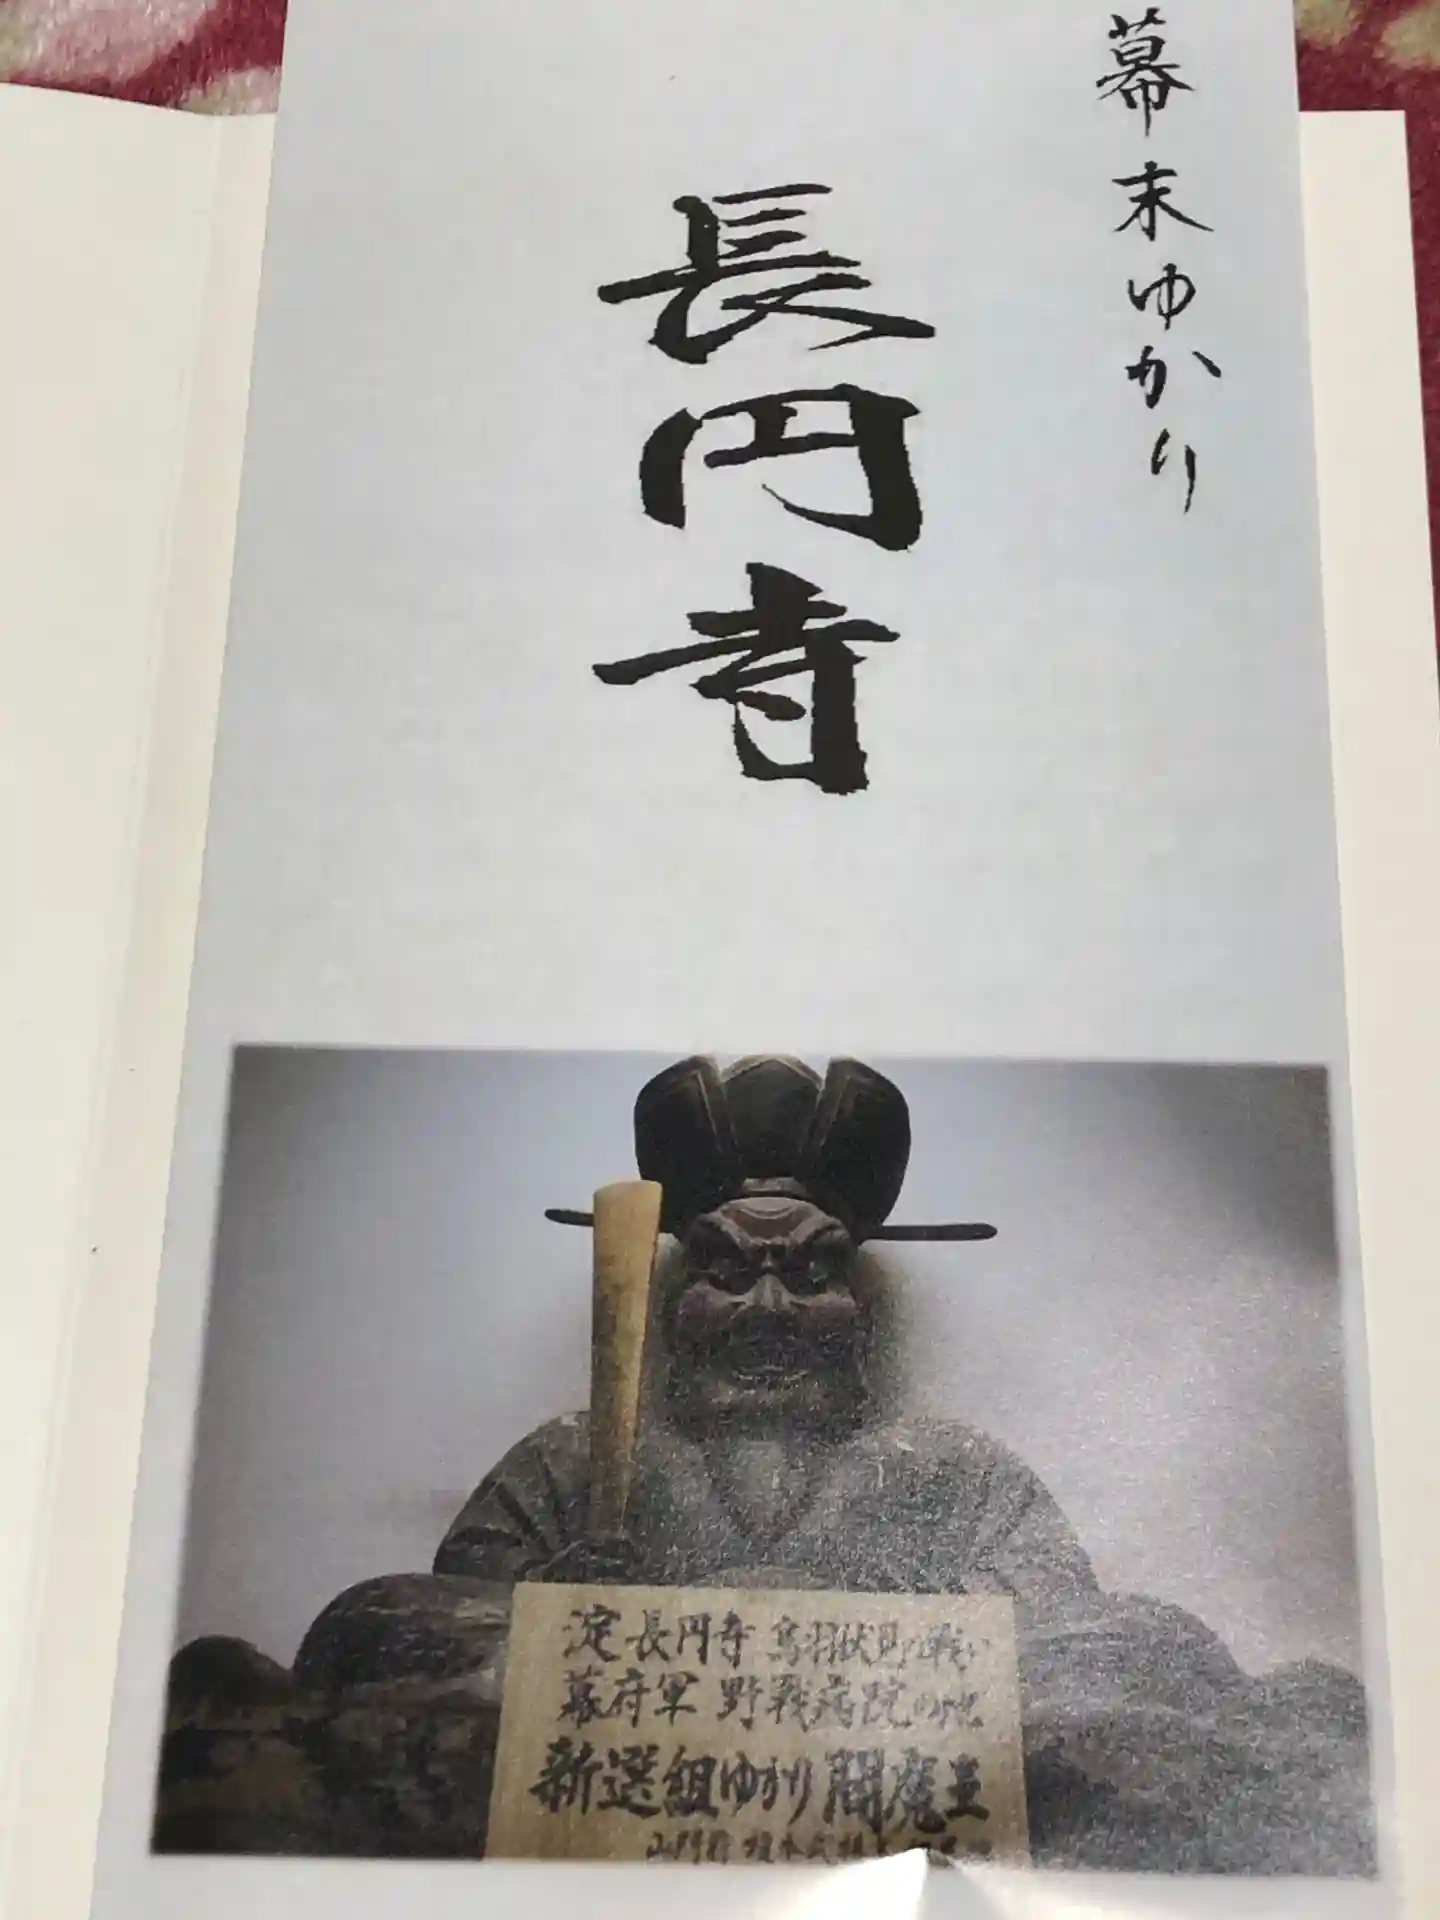 幕末ゆかり
長円寺
淀 長円寺 鳥羽伏見の戦い
幕府軍 野戦病院の地
新選組ゆかり 閻魔王